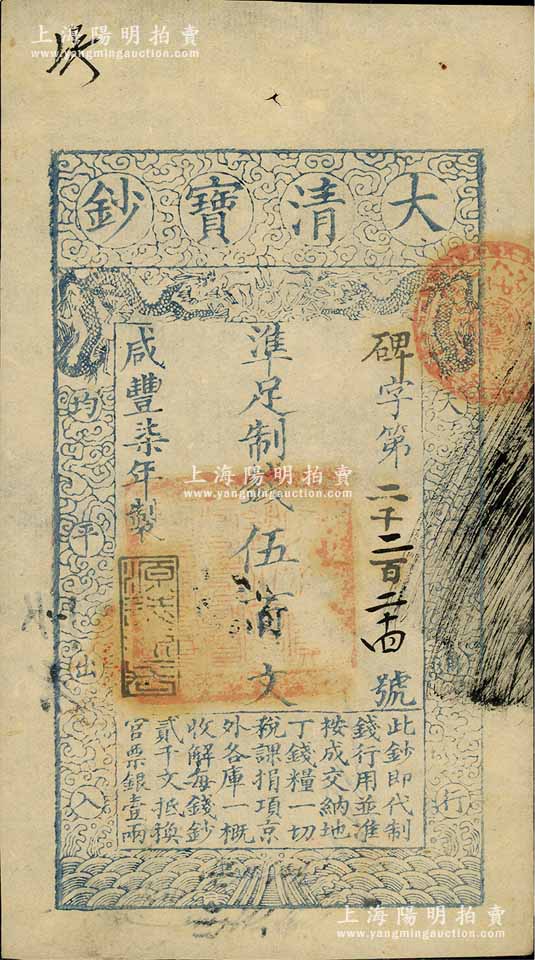 上海陽明拍賣
www.yangmingauction.com
大清寶鈔
碑字第二千二百二十四號
準足制錢伍百文
咸豐柒年製
天
行
均平出入
此鈔即代制
錢行用並准
按成交納地
丁錢糧一切
稅課捐項京
外各庫一概
收解每錢鈔
貳千文抵換
官票銀壹兩
上海陽明拍賣
www.yangmingauction.com
上海陽明拍賣
www.yangmingauction.com